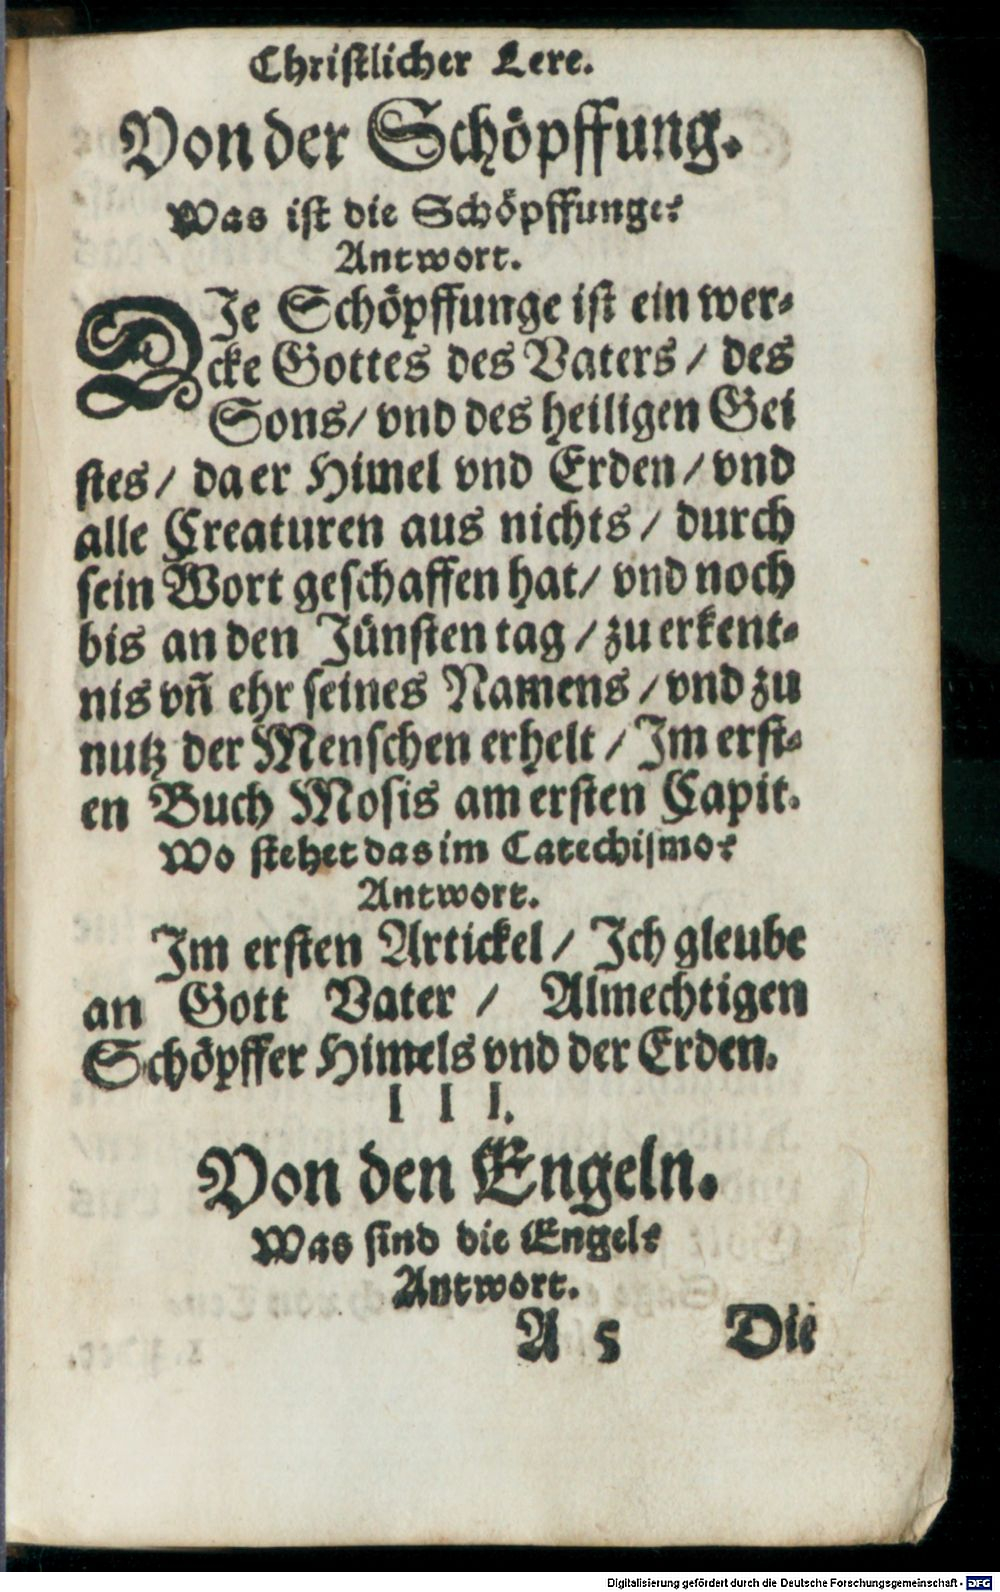 Christlicher Lere.
Von der Schöpffung.
Was ist die Schöpffunge?
Antwort.
DIe Schöpffunge ist ein wer-
cke Gottes des Vaters / des
Sons / vnd des heiligen Gei
stes / da er Himel vnd Erden / vnd
alle Creaturen aus nichts / durch
sein Wort geschaffen hat / vnd noch
bis an den Jünsten tag / zu erkent-
nis vñ ehr seines Namens / vnd zu
nutz der Menschen erhelt / Im erst-
en Buch Mosis am ersten Capit.
Wo stehet das im Catechismo?
Antwort.
Im ersten Artickel / Ich gleube
an Gott Vater / Almechtigen
Schöpffer Himels vnd der Erden.
I I I.
Von den Engeln.
Was sind die Engel?
Antwort.
A 5 Die
Digitalisierung gefördert durch die Deutsche Forschungsgemeinschaft - DFG